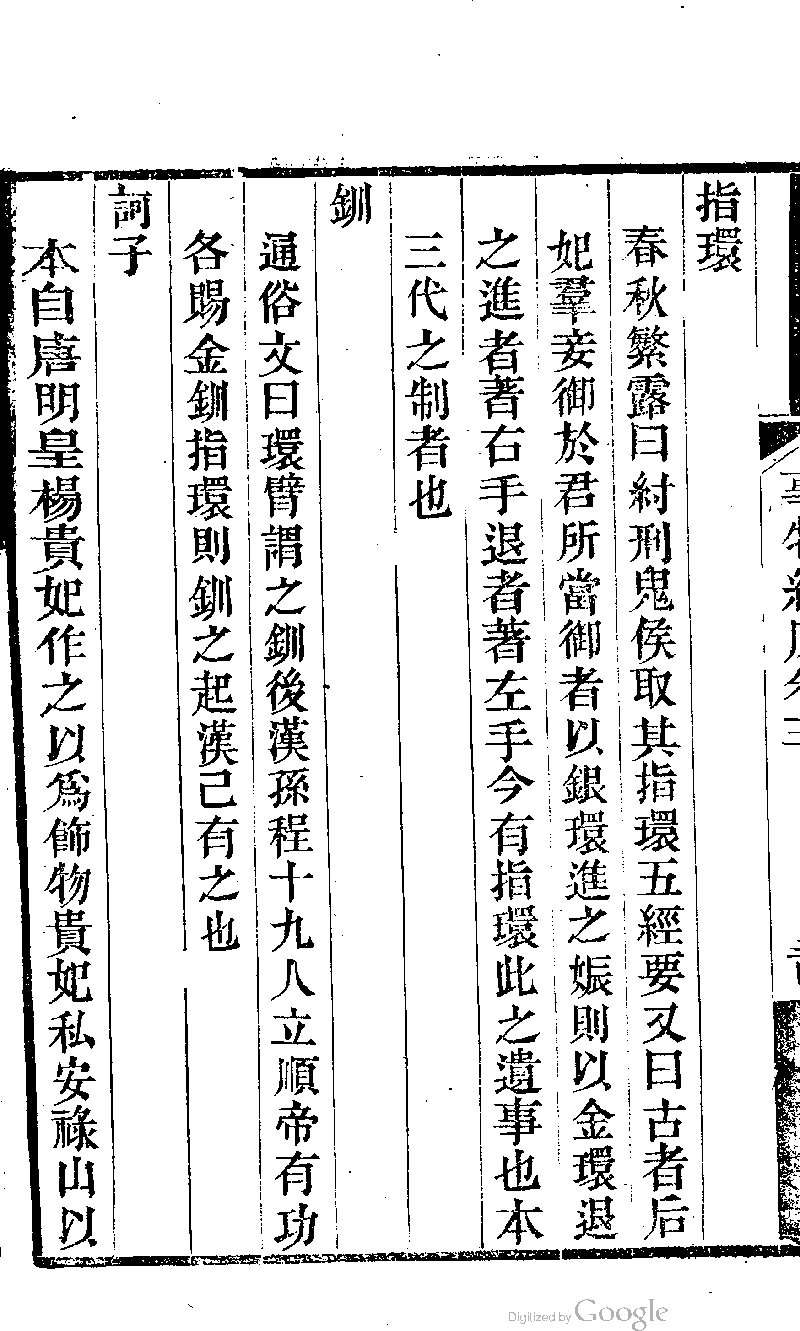 指環
春秋繁露曰紂刑鬼侯取其指環五經要又曰古者后
妃羣妾御於君所當御者以銀環進之娠則以金環退
之進者著右手退者著左手今有指環此之遺事也本
三代之制者也
釧
通俗文曰環臂謂之釧後漢孫程十九人立順帝有功
各賜金釧指環則釧之起漢己有之也
訶子
本自唐明皇楊貴妃作之以爲飾物貴妃私安祿山以
Digitized by Google